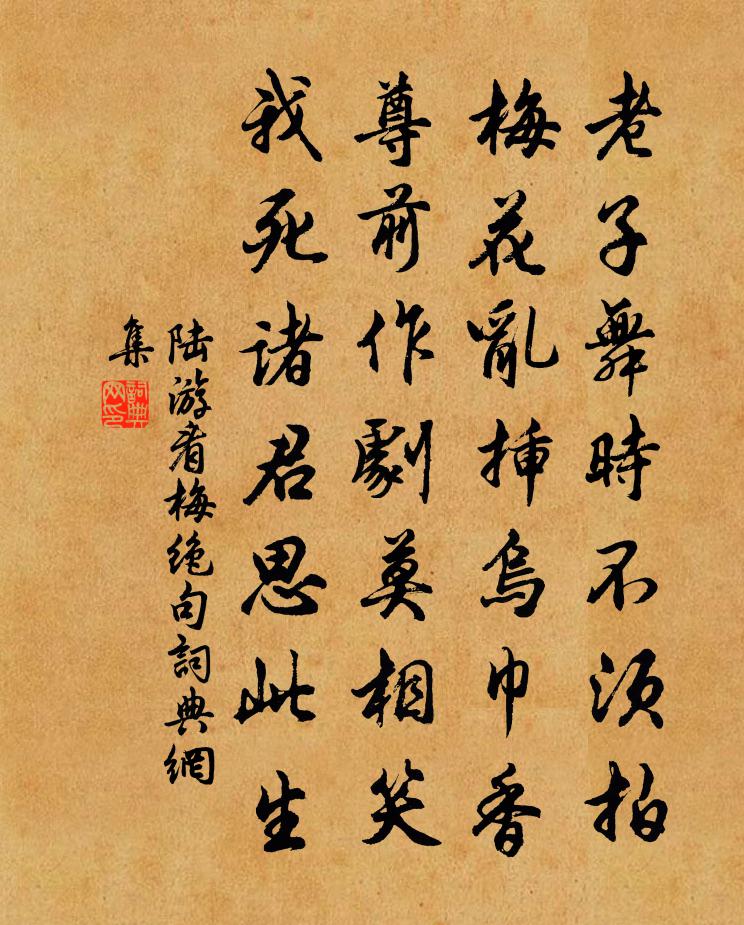 老子舞時不須拍
梅花亂插烏巾香
尊前作劇莫相笑
我死諸君思此生
陸游看梅絕句詞典網
集
詞典
网印